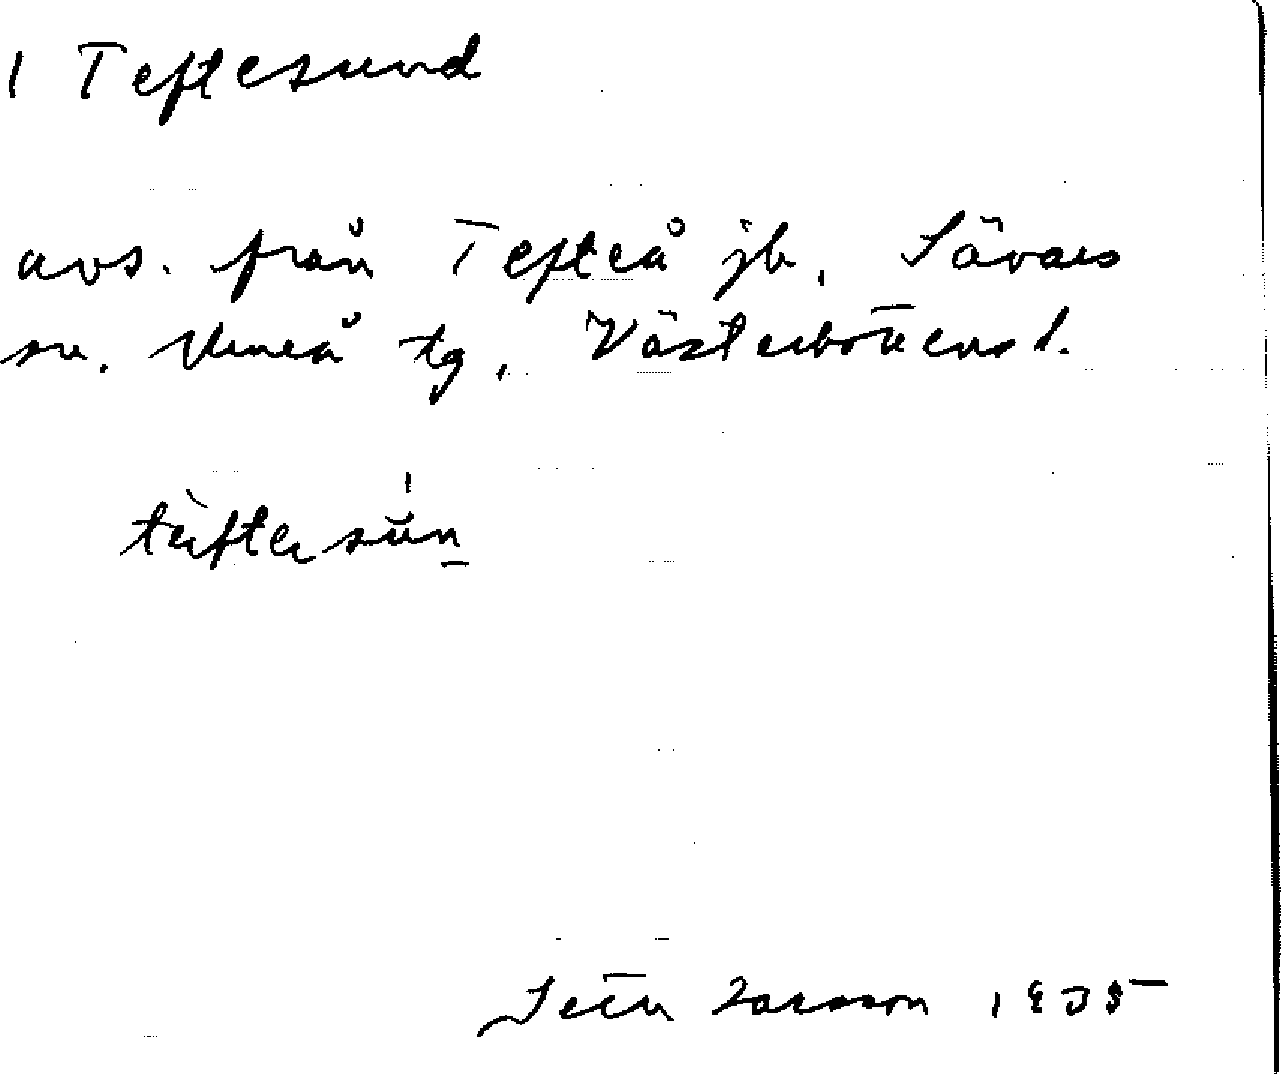 1 Teftesund
avs. från Tefteå jb., Sävars
sn. Umeå tg, Västerbottens l.
tèftersŭn
Larsson 1935